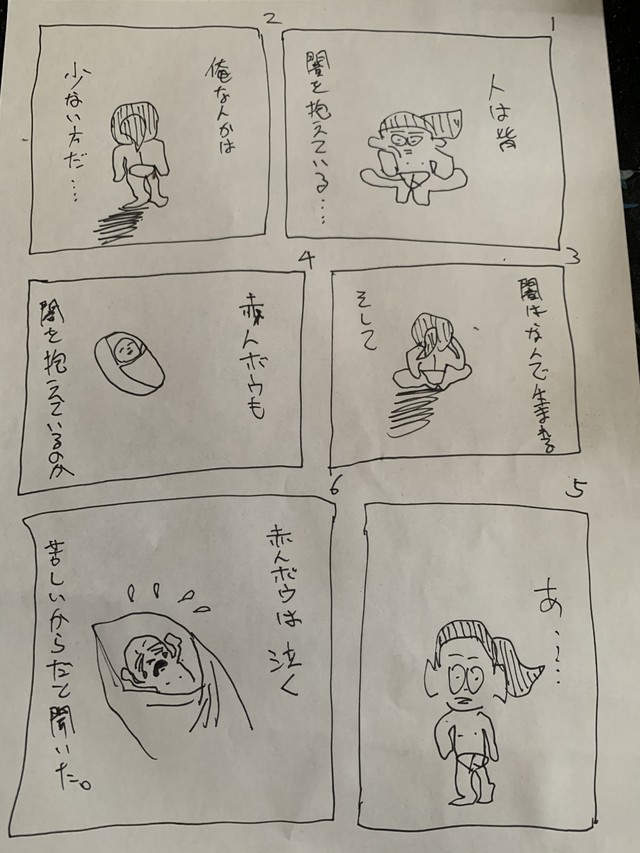 1
人は皆
闇を抱えている…
2
俺なんかは
少ない方だ…
3
闇はなんで生まれる
そして
4
赤んボウも
闇を抱えているのか
5
あ……
6
赤んボウは泣く
苦しいからだて聞いた。